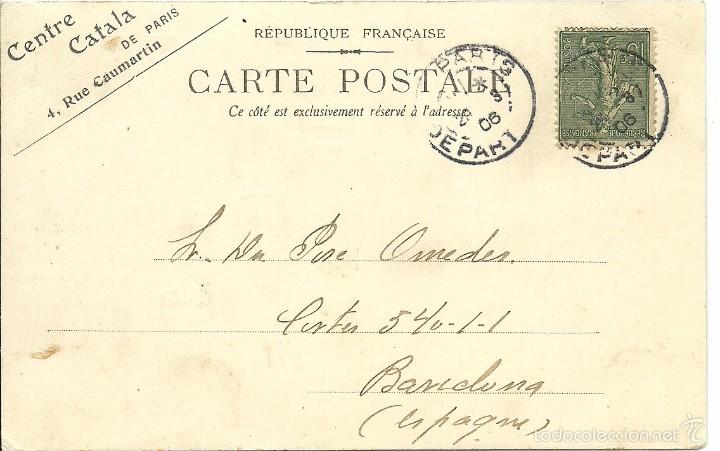 Centre
Catala
DE PARIS
4, Rue Caumartin
RÉPUBLIQUE FRANÇAISE
CARTE POSTALE
Ce côté est exclusivement réservé à l'adresse
PARIS
06
DEPART
Sr. Dn Pose Omedes.
Cortes 540-1-1
Barcelona
(espagne)
todocoleccion.net